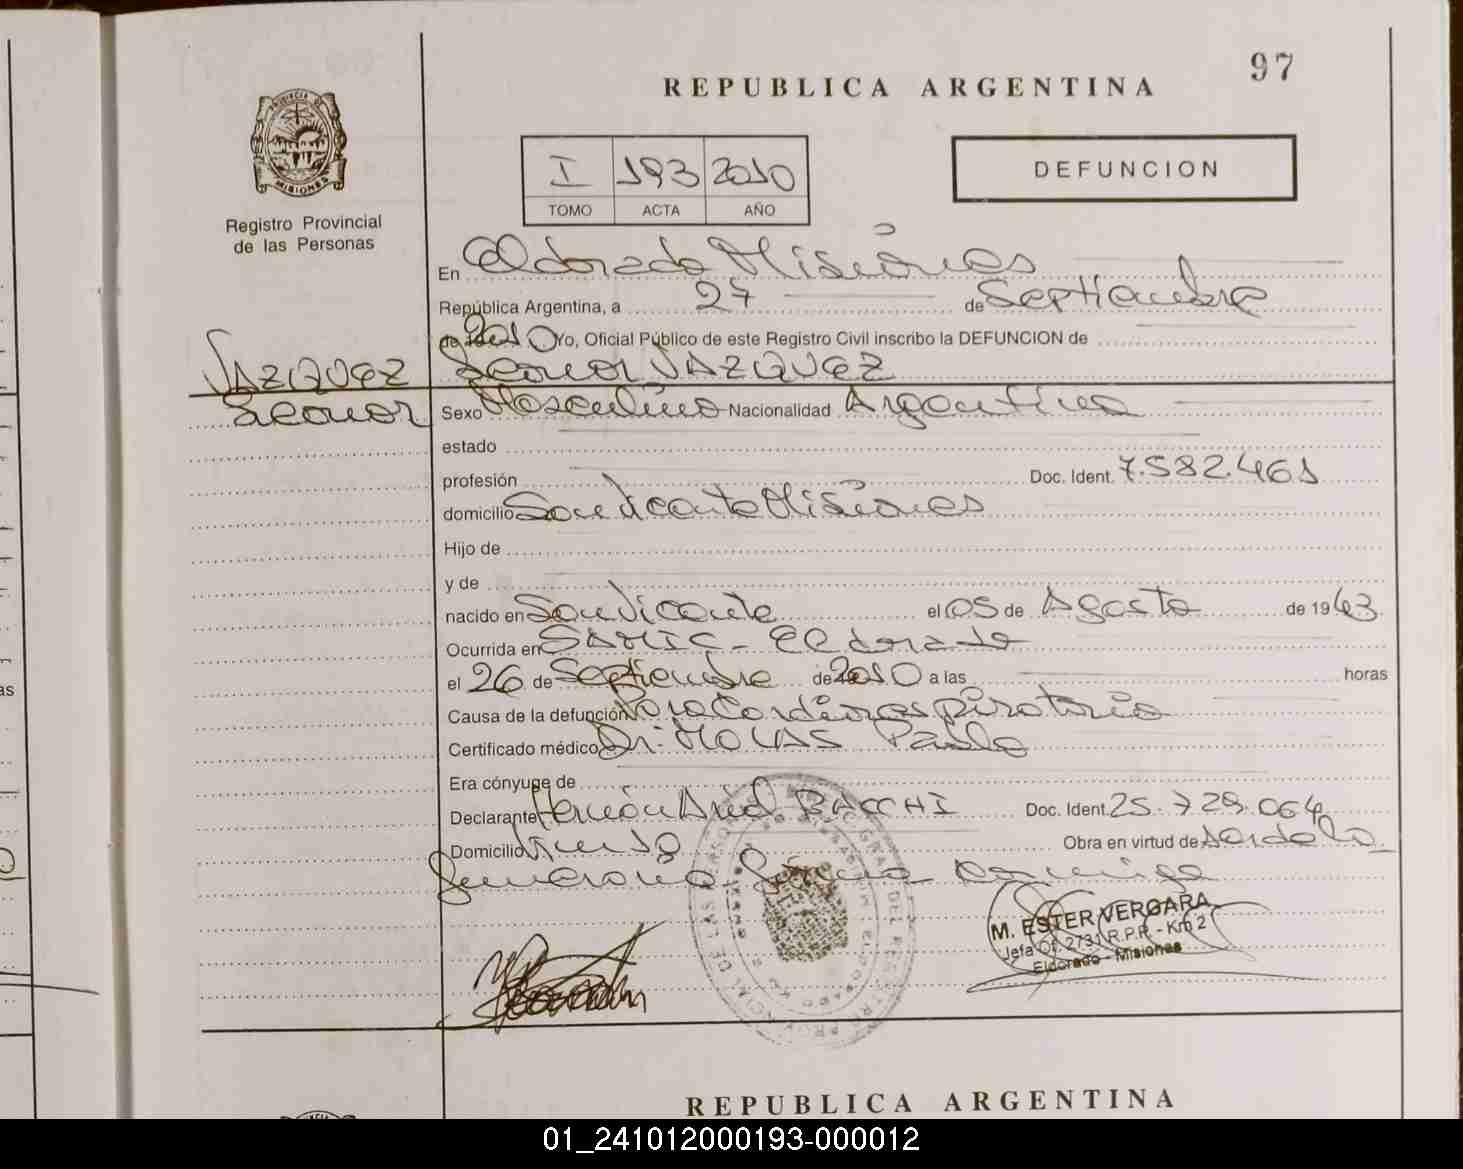 97
REPUBLICA ARGENTINA
I 193 2010
TOMO ACTA AÑO
DEFUNCION
PROVINCIA DE
MISIONES
Registro Provincial
de las Personas
En Eldorado Misiones
República Argentina, a 27 de Septiembre
de 2010 Yo, Oficial Público de este Registro Civil inscribo la DEFUNCION de
VAZQUEZ
Leonor VAZQUEZ
Leonor
Sexo Masculino Nacionalidad Argentina
estado
profesión Doc. Ident. 7.582.461
domicilio San Vicente Misiones
Hijo de
y de
nacido en San Vicente el 05 de Agosto de 1943
Ocurrida en SAMIC - Eldorado
el 26 de Septiembre de 2010 a las horas
Causa de la defunción Paro Cardiorespiratorio
Certificado médico Dr. MOLAS Pablo
Era cónyuge de
Declarante Hernán Ariel BACCHI Doc. Ident. 25.729.064
Domicilio Obra en virtud de
M. ESTER VERGARA
Jefa Of. 2731 R.P.P. - Km 2
Eldorado - Misiones
REPUBLICA ARGENTINA
01_241012000193-000012